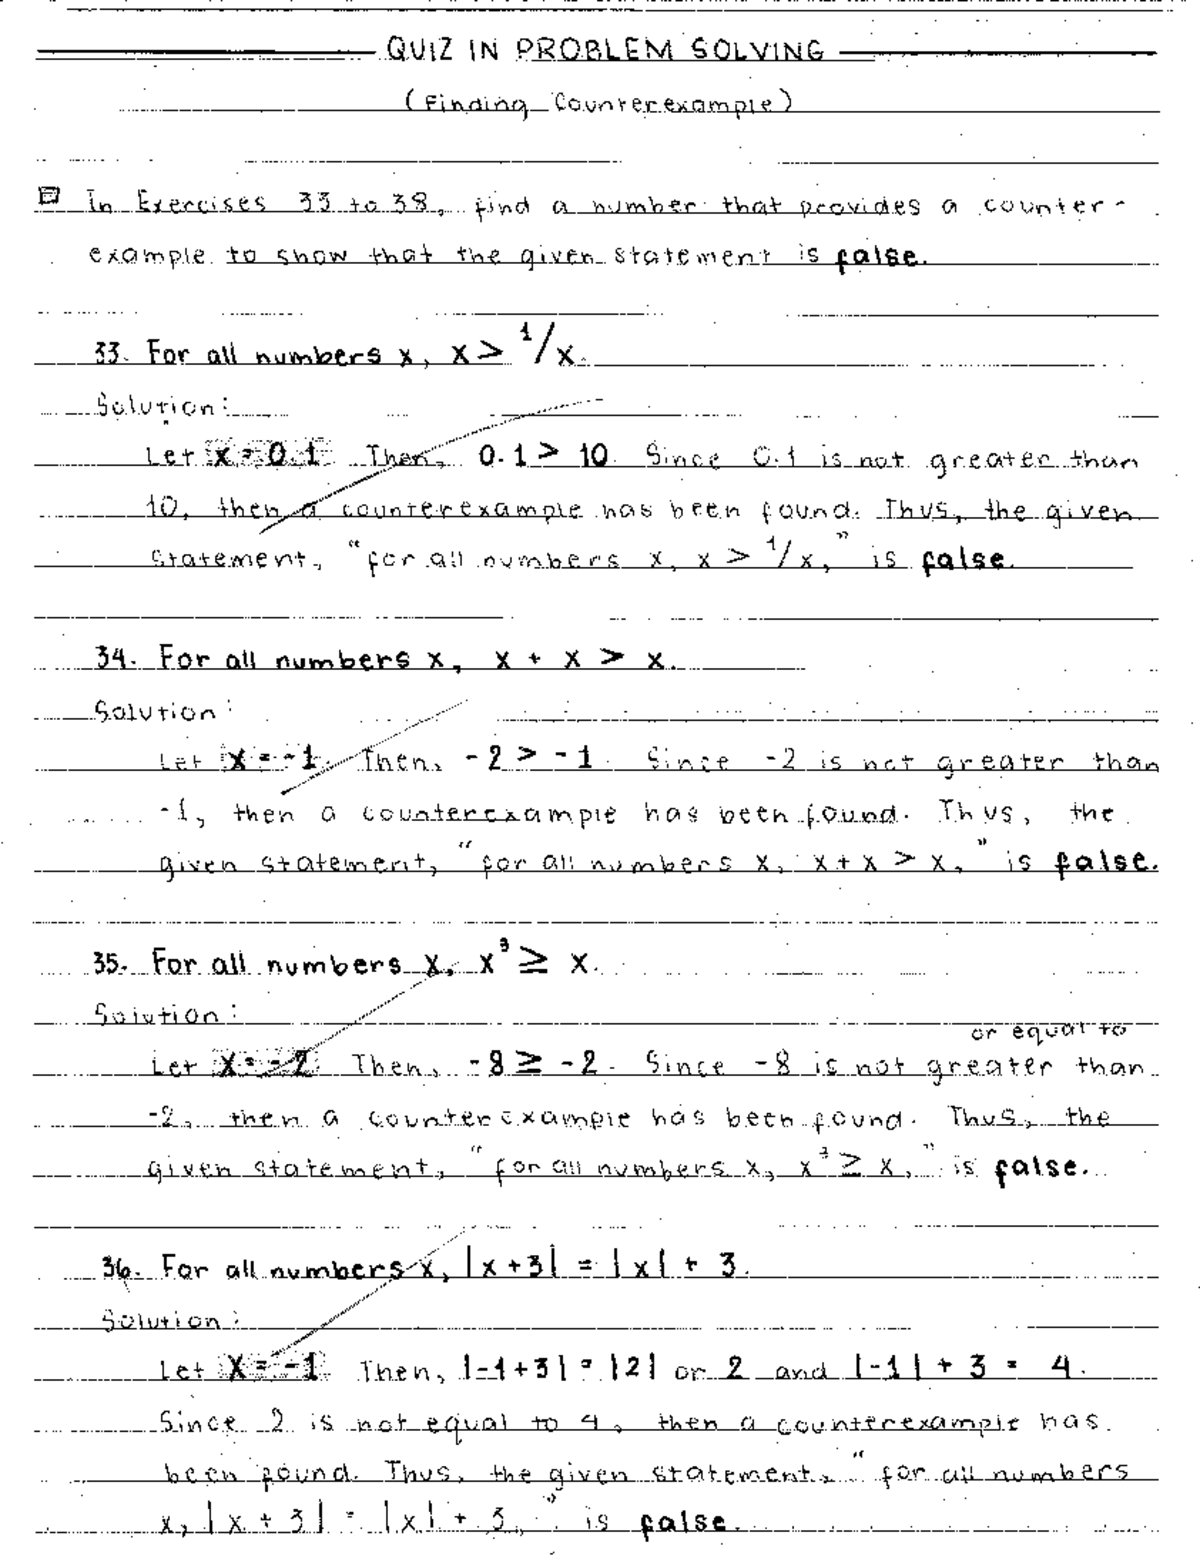 QUIZ IN PROBLEM SOLVING
(Finding Counterexample)
In Exercises 33 to 38, find a number that provides a counter-
example to show that the given statement is false.
33. For all numbers x, x > 1/x.
Solution:
Let x = 0.1. Then, 0.1 > 10. Since 0.1 is not greater than
10, then a counterexample has been found. Thus, the given
statement, "for all numbers x, x > 1/x," is false.
34. For all numbers x, x + x > x.
Solution:
Let x = -1. Then, -2 > -1. Since -2 is not greater than
-1, then a counterexample has been found. Thus, the
given statement, "for all numbers x, x + x > x," is false.
35. For all numbers x, x³ ≥ x.
Solution:
or equal to
Let x = -2. Then, -8 ≥ -2. Since -8 is not greater than
-2, then a counterexample has been found. Thus, the
given statement, "for all numbers x, x³ ≥ x," is false.
36. For all numbers x, |x+3| = |x| + 3.
Solution:
Let x = -1. Then, |-1+3| = |2| or 2 and |-1| + 3 = 4.
Since 2 is not equal to 4, then a counterexample has
been found. Thus, the given statement, "for all numbers
x, |x + 3| = |x| + 3," is false.